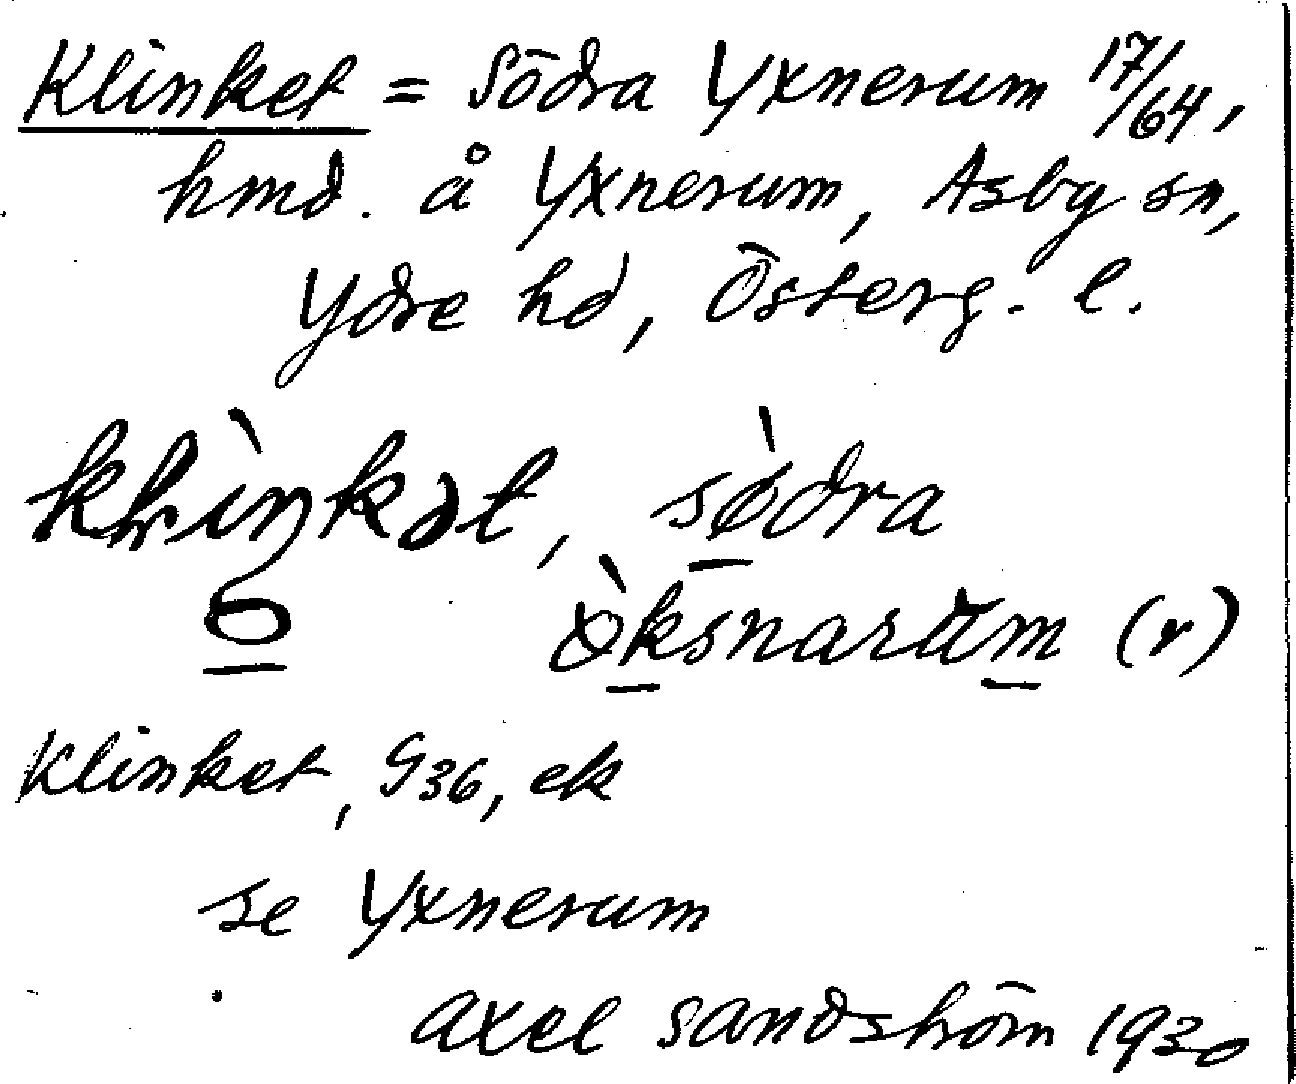 Klinket = Södra Yxnerum 17/64,
hmd. å Yxnerum, Asby sn,
Ydre hd, Österg. l.
södra
(r)
Klinket, G36, ek
se Yxnerum
Axel Sandström 1930